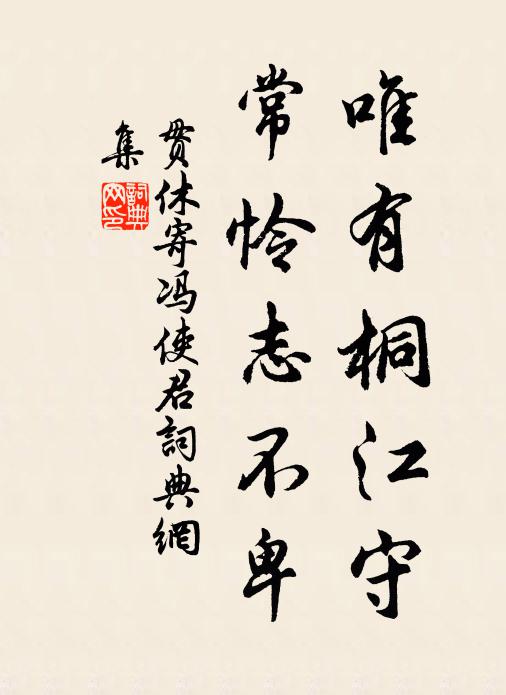 唯有桐江守
常怜志不卑
贯休寄冯使君詞典網
集
詞典网印